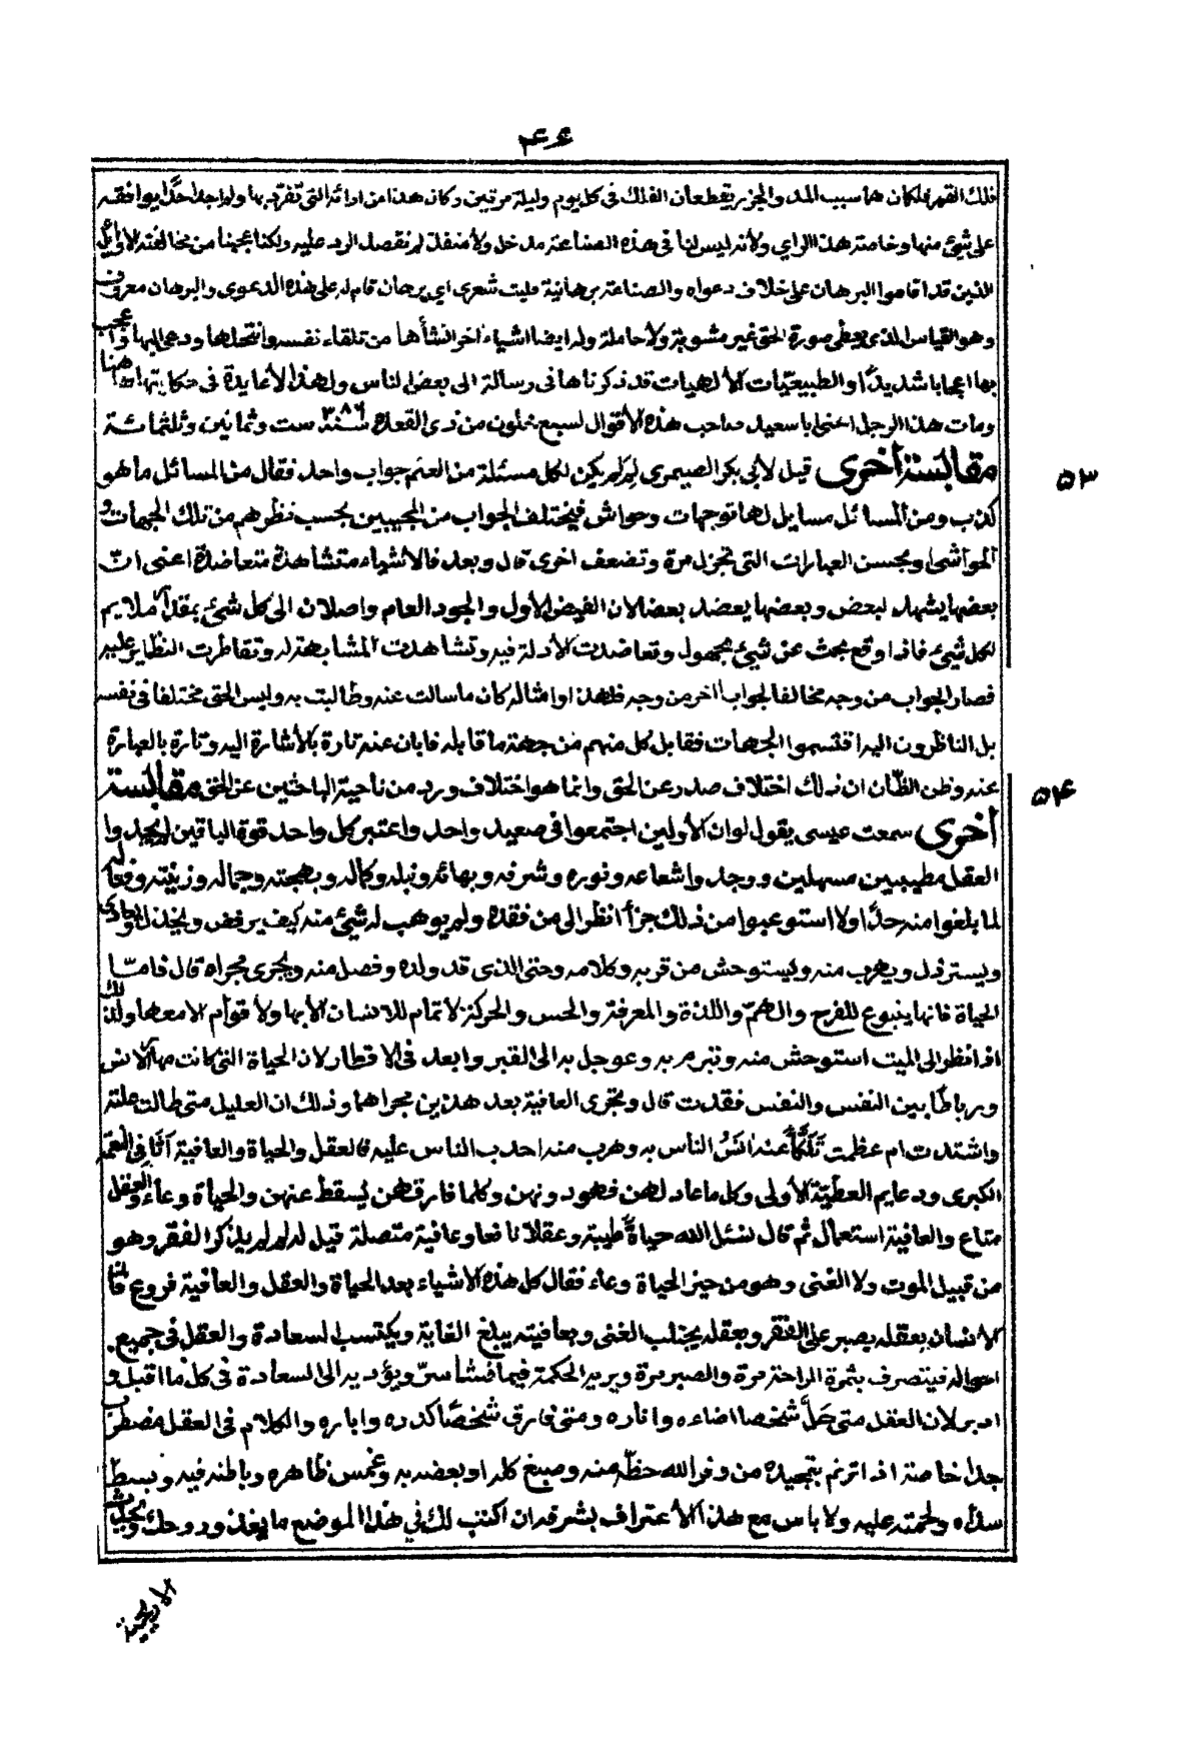 ٤٦
فلك القمر فلكان هما سبب المد والجزر يقطعان الفلك فى كل يوم وليلة مرتين وكان هذا من ارائه التى تفرد بها ولم اجد احدا يوافقه
على شئ منها وخاصة هذا الراى ولانه ليس لنا فى هذه الصناعة مدخل ولا منفذ لم نقصد الرد عليه ولكنا عجبنا من مخالفته الاوائل
الذين قد اقاموا البرهان على خلاف دعواه والصناعة برهانية فليت شعرى اى برهان قام له على هذه الدعوى والبرهان معروف
وهو القياس الذى يعطى صورة الحق غير مشوبة ولا حاملة وله ايضا اشياء اخر انشأها من تلقاء نفسه وانتحلها ودعى اليها واعجب
بها اعجابا شديدًا والطبيعيّات الالهيات قد ذكرناها فى رسالة الى بعض الناس ولهذا لا فايدة فى حكايتها ههنا
ومات هذا الرجل اعنى ابا سعيد صاحب هذه الاقوال لسبع خلون من ذى القعدة سنة ٣٨٦ ست وثمانين وثلثمائة
مقابسة أخرى قيل لابى بكر الصيمرى لم لم يكن لكل مسئلة من العلم جواب واحد فقال من المسائل ما هو
٥٣
كذب ومن المسائل مسايل لها توجهات وحواش فيختلف الجواب من المجيبين بحسب نظرهم من تلك الجهات و
الحواشى وبحسن العبارات التى تجزل مرة وتضعف اخرى قال وبعد فالاشياء متشاهدة متعاضدة اعنى انّ
بعضها يشهد لبعض وبعضها يعضد بعضا لان الفيض الاول والجود العام واصلان الى كل شئ بمقدار ملايم
لكل شئ فاذا وقع بحث عن شئ مجهول وتعاضدت الادلة فيه وتشاهدت المشابهة له وتقاطرت النظاير عليه
فصار الجواب من وجه مخالفا لجواب اخر من وجه فلهذا وامثاله كان ما سالت عنه وطالبت به وليس الحق مختلفا فى نفسه
بل الناظرون اليه اقتسموا الجهات فقابل كل منهم من جهة ما قابله فابان عنه تارة بالاشارة اليه وتارة بالعبارة
عنه وظن الظّان ان ذلك اختلاف صدر عن الحق وانما هو اختلاف ورد من ناحية الباحثين عن الحق مقابسة
٥٤
أخرى سمعت عيسى يقول لو ان الاولين اجتمعوا فى صعيد واحد واعتبر كل واحد قوة الباقين ليجدوا
العقل مطيبين مسهلين ووجد واشعاعه ونوره وشرفه وبهائه ونبله وكماله وبهجته وجماله وزينته وفعاله
لما بلغوا منه حدًا ولا استوعبوا من ذلك جزأ انظر الى من فقده ولم يوهب له شئ منه كيف يرفض ويخذل ويعادى
ويسترذل ويهرب منه ويستوحش من قربه وكلامه وحتى الذى قد ولده وفصل منه ويجرى مجراه قال فامّا
الحياة فانها ينبوع للفرح والهمّ واللذة والمعرفة والحس والحركة لا تمام للانسان الا بها ولا قوام الا معها ولذلك
اذا نظر الى الميت استوحش منه وتبرم به وعوجل به الى القبر وابعد فى الاقطار لان الحياة التى كانت مهاد الانس
ورباطًا بين النفس والنفس فقدت قال وتجرى العافية بعد هذين مجراهما وذلك ان العليل متى طالت علته
واشتدت ام عظمت تلكّأ عنه انسُ الناس به وهرب منه احدب الناس عليه فالعقل والحياة والعافية اثافى النعمة
الكبرى ودعايم العطيّة الاولى وكل ما عاد لهن فهو دونهن وكلما فارقهن يسقط عنهن والحياة وعاء والعقل
متاع والعافية استعمال ثم قال نسئل الله حياةً طيبة وعقلا نافعا وعافية متصلة قيل له لم لم يذكر الفقر وهو
من قبيل الموت ولا الغنى وهو من حيز الحياة وعاء فقال كل هذه الاشياء بعد الحياة والعقل والعافية فروع فان
الانسان بعقله يصبر على الفقر وبعقله يجتلب الغنى وبعافيته يبلغ الغاية ويكتسب السعادة والعقل فى جميع
احواله فيتصرف بثمرة الراحة مرة والصبر مرة ويريه الحكمة فيما فشا سرّ ويؤديه الى السعادة فى كل ما اقبل و
ادبر لان العقل متى حَلَّ شخصا اضاءه واناره ومتى فارق شخصًا كدره واباره والكلام فى العقل مضطرب
جدا خاصة اذا ترنم بتمجيده من وفر الله حظّه منه وصبغ كله او بعضه به وغمس ظاهره وباطنه فيه وبسط
سداه ولحمته عليه ولا باس مع هذا الاعتراف بشرفه ان اكتب لك فى هذا الموضع ما يغذو روحك ويجلب
الاريحية